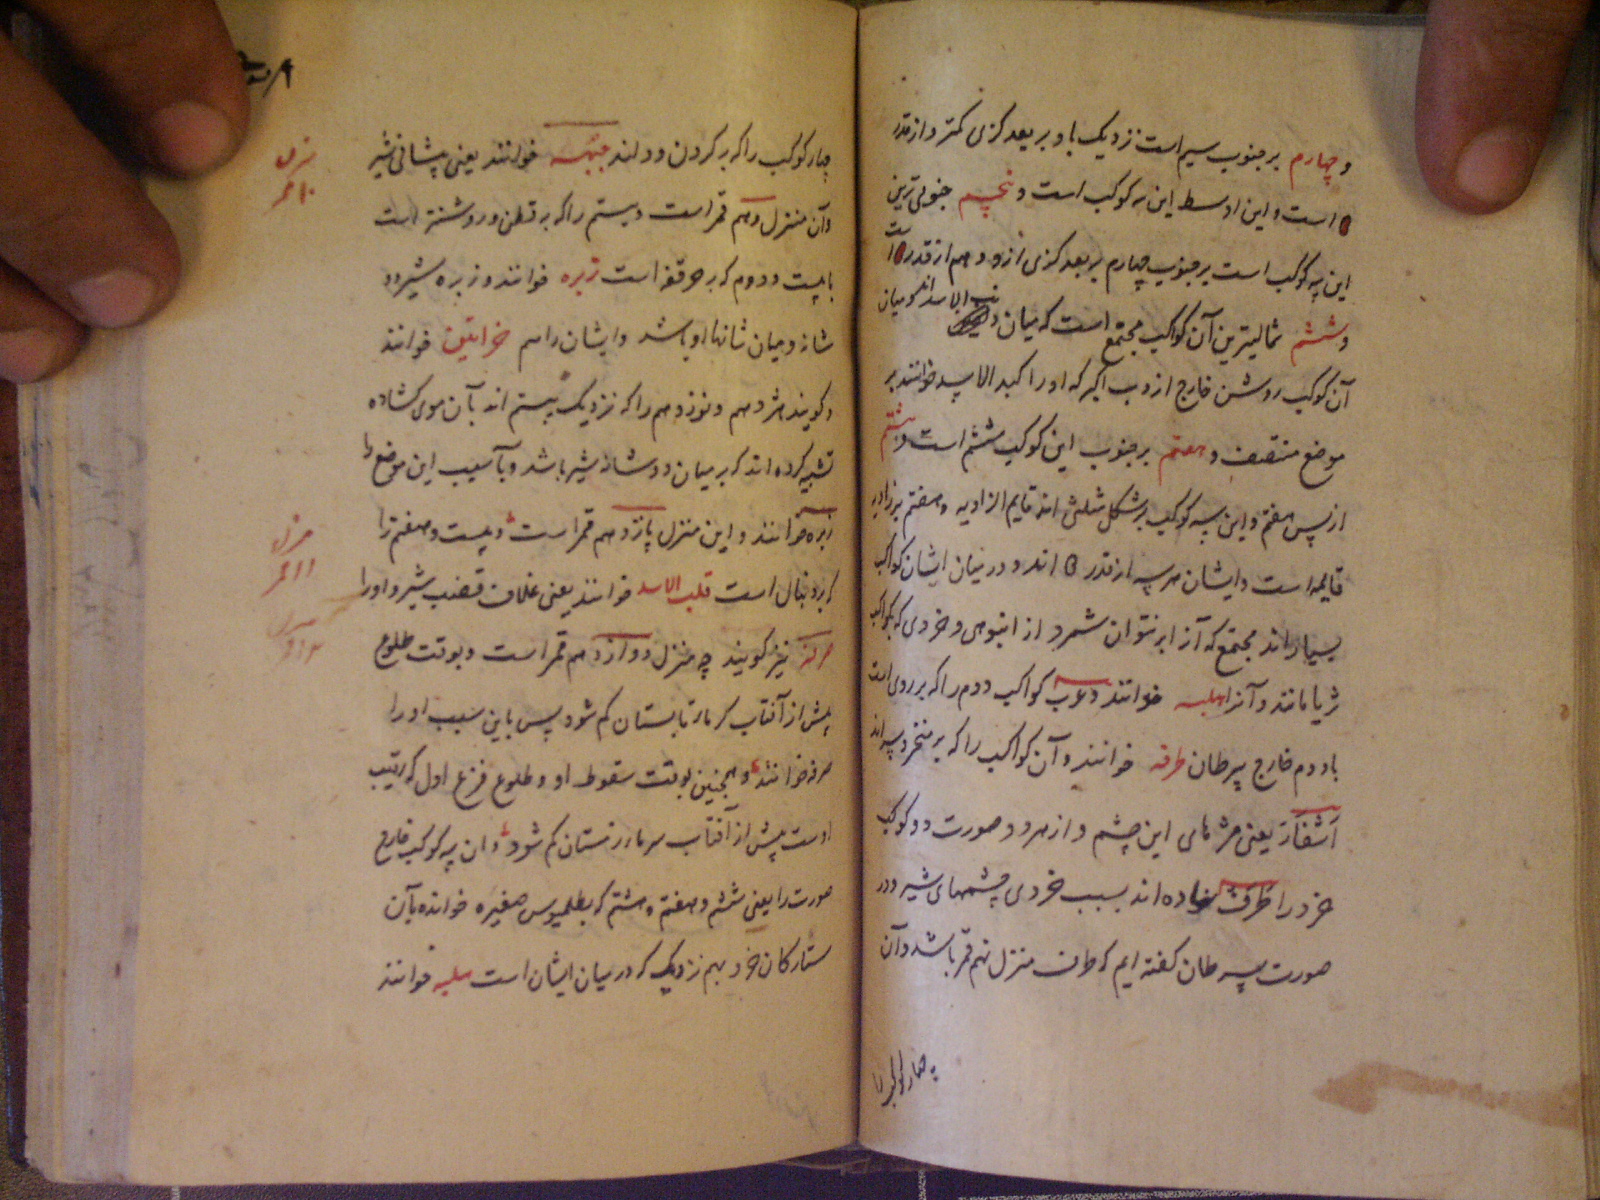 و چهارم بر جنوب سیم است نزدیک باو بر بعد کزی کمتر و از قدر
است و این اوسط این سه کوکب است و پنجم جنوبی ترین
این سه کوکب است بر جنوب چهارم بر بعد کزی ازو و هم از قدر است
و ششم شمالیترین آن کواکب مجتمع است که میان ذنب الاسد اند و میان
آن کوکب روشن خارج از دب اکبر که او را کبد الاسد خوانند بر
موضع منقصف و هفتم بر جنوب این کوکب ششم است و هشتم
از پس هفتم و این سه کوکب بر شکل مثلثی اند قایم الزاویه و هفتم بر زاویه
قایمه است و ایشان هر سه از قدر اند و در میان ایشان کواکب
بسیار اند مجتمع که آنرا بر نتوان شمرد از انبوهی و خردی که بکواکب
ثریا مانند و آنرا هلبه خوانند و عرب کواکب دوم را که بر روی است
با دوم خارج سرطان طرفه خوانند و آن کواکب را که بر منخر و سر اند
اشفار یعنی مژهای این چشم و از هر دو صورت دو کوکب
خرد را طرف نهاده اند بسبب خردی چشمهای شیر و در
صورت سرطان گفته ایم که طرف منزل نهم قمر باشد و آن
چهار کوکب را
چهار کوکب را که بر کردن و دلند جبهه خوانند یعنی پیشانی شیر
و آن منزل دهم قمر است و بیستم را که بر قطن و روشنتر است
با بیست و دوم که بر حرقفه است زبره خوانند و زبره شیر دو
شانه و میان شانها او باشد و ایشان را هم خراتین خوانند
و کویند هژدهم و نوزدهم را که نزدیک بیستم اند بآن موی کشاده
تشبیه کرده اند که بر میان دو شانه شیر باشد و بآسیب این موضع را
زبره خوانند و این منزل یازدهم قمر است و بیست و هفتم را
که بر دنبال است قلب الاسد خوانند یعنی غلاف قضیب شیر و او را
صرفه نیز کویند چه منزل دوازدهم قمر است و بوقت طلوع
پیش از آفتاب کرما در تابستان کم شود پس باین سبب او را
صرفه خوانند و همچنین بوقت سقوط او و طلوع فرغ اول که رقیب
اوست پیش از آفتاب سرما در زمستان کم شود و آن سه کوکب خارج
صورت را یعنی ششم و هفتم و هشتم که بطلمیوس ضفیره خوانده بآن
ستارکان خرد بهم نزدیک که در میان ایشان است هلبه خوانند